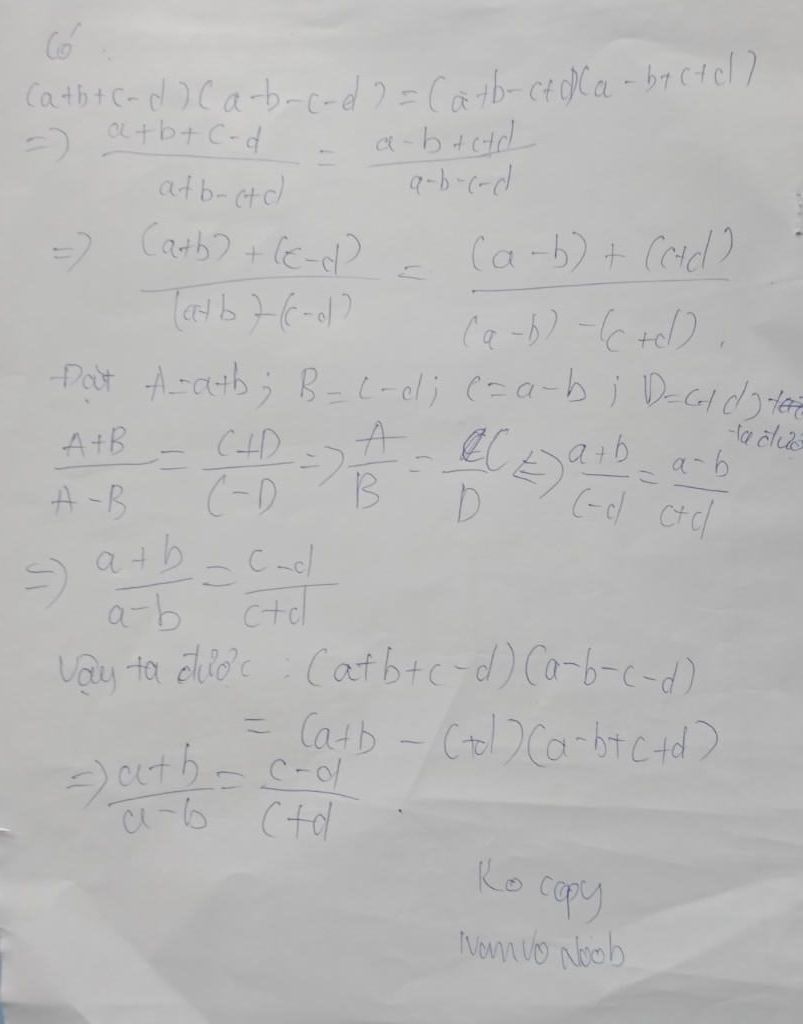 Có :
(a+b+c-d)(a-b-c-d) = (a+b-c+d)(a-b+c+d)
=> (a+b+c-d)/(a+b-c+d) = (a-b+c+d)/(a-b-c-d)
=> ((a+b)+(c-d))/((a+b)-(c-d)) = ((a-b)+(c+d))/((a-b)-(c+d)).
Đặt A=a+b; B=c-d; C=a-b; D=c+d,
ta được
(A+B)/(A-B) = (C+D)/(C-D) => A/B = C/D <=> (a+b)/(c-d) = (a-b)/(c+d)
=> (a+b)/(a-b) = (c-d)/(c+d)
Vậy ta được : (a+b+c-d)(a-b-c-d)
= (a+b-c+d)(a-b+c+d)
=> (a+b)/(a-b) = (c-d)/(c+d).
Ko copy
NamVo Noob